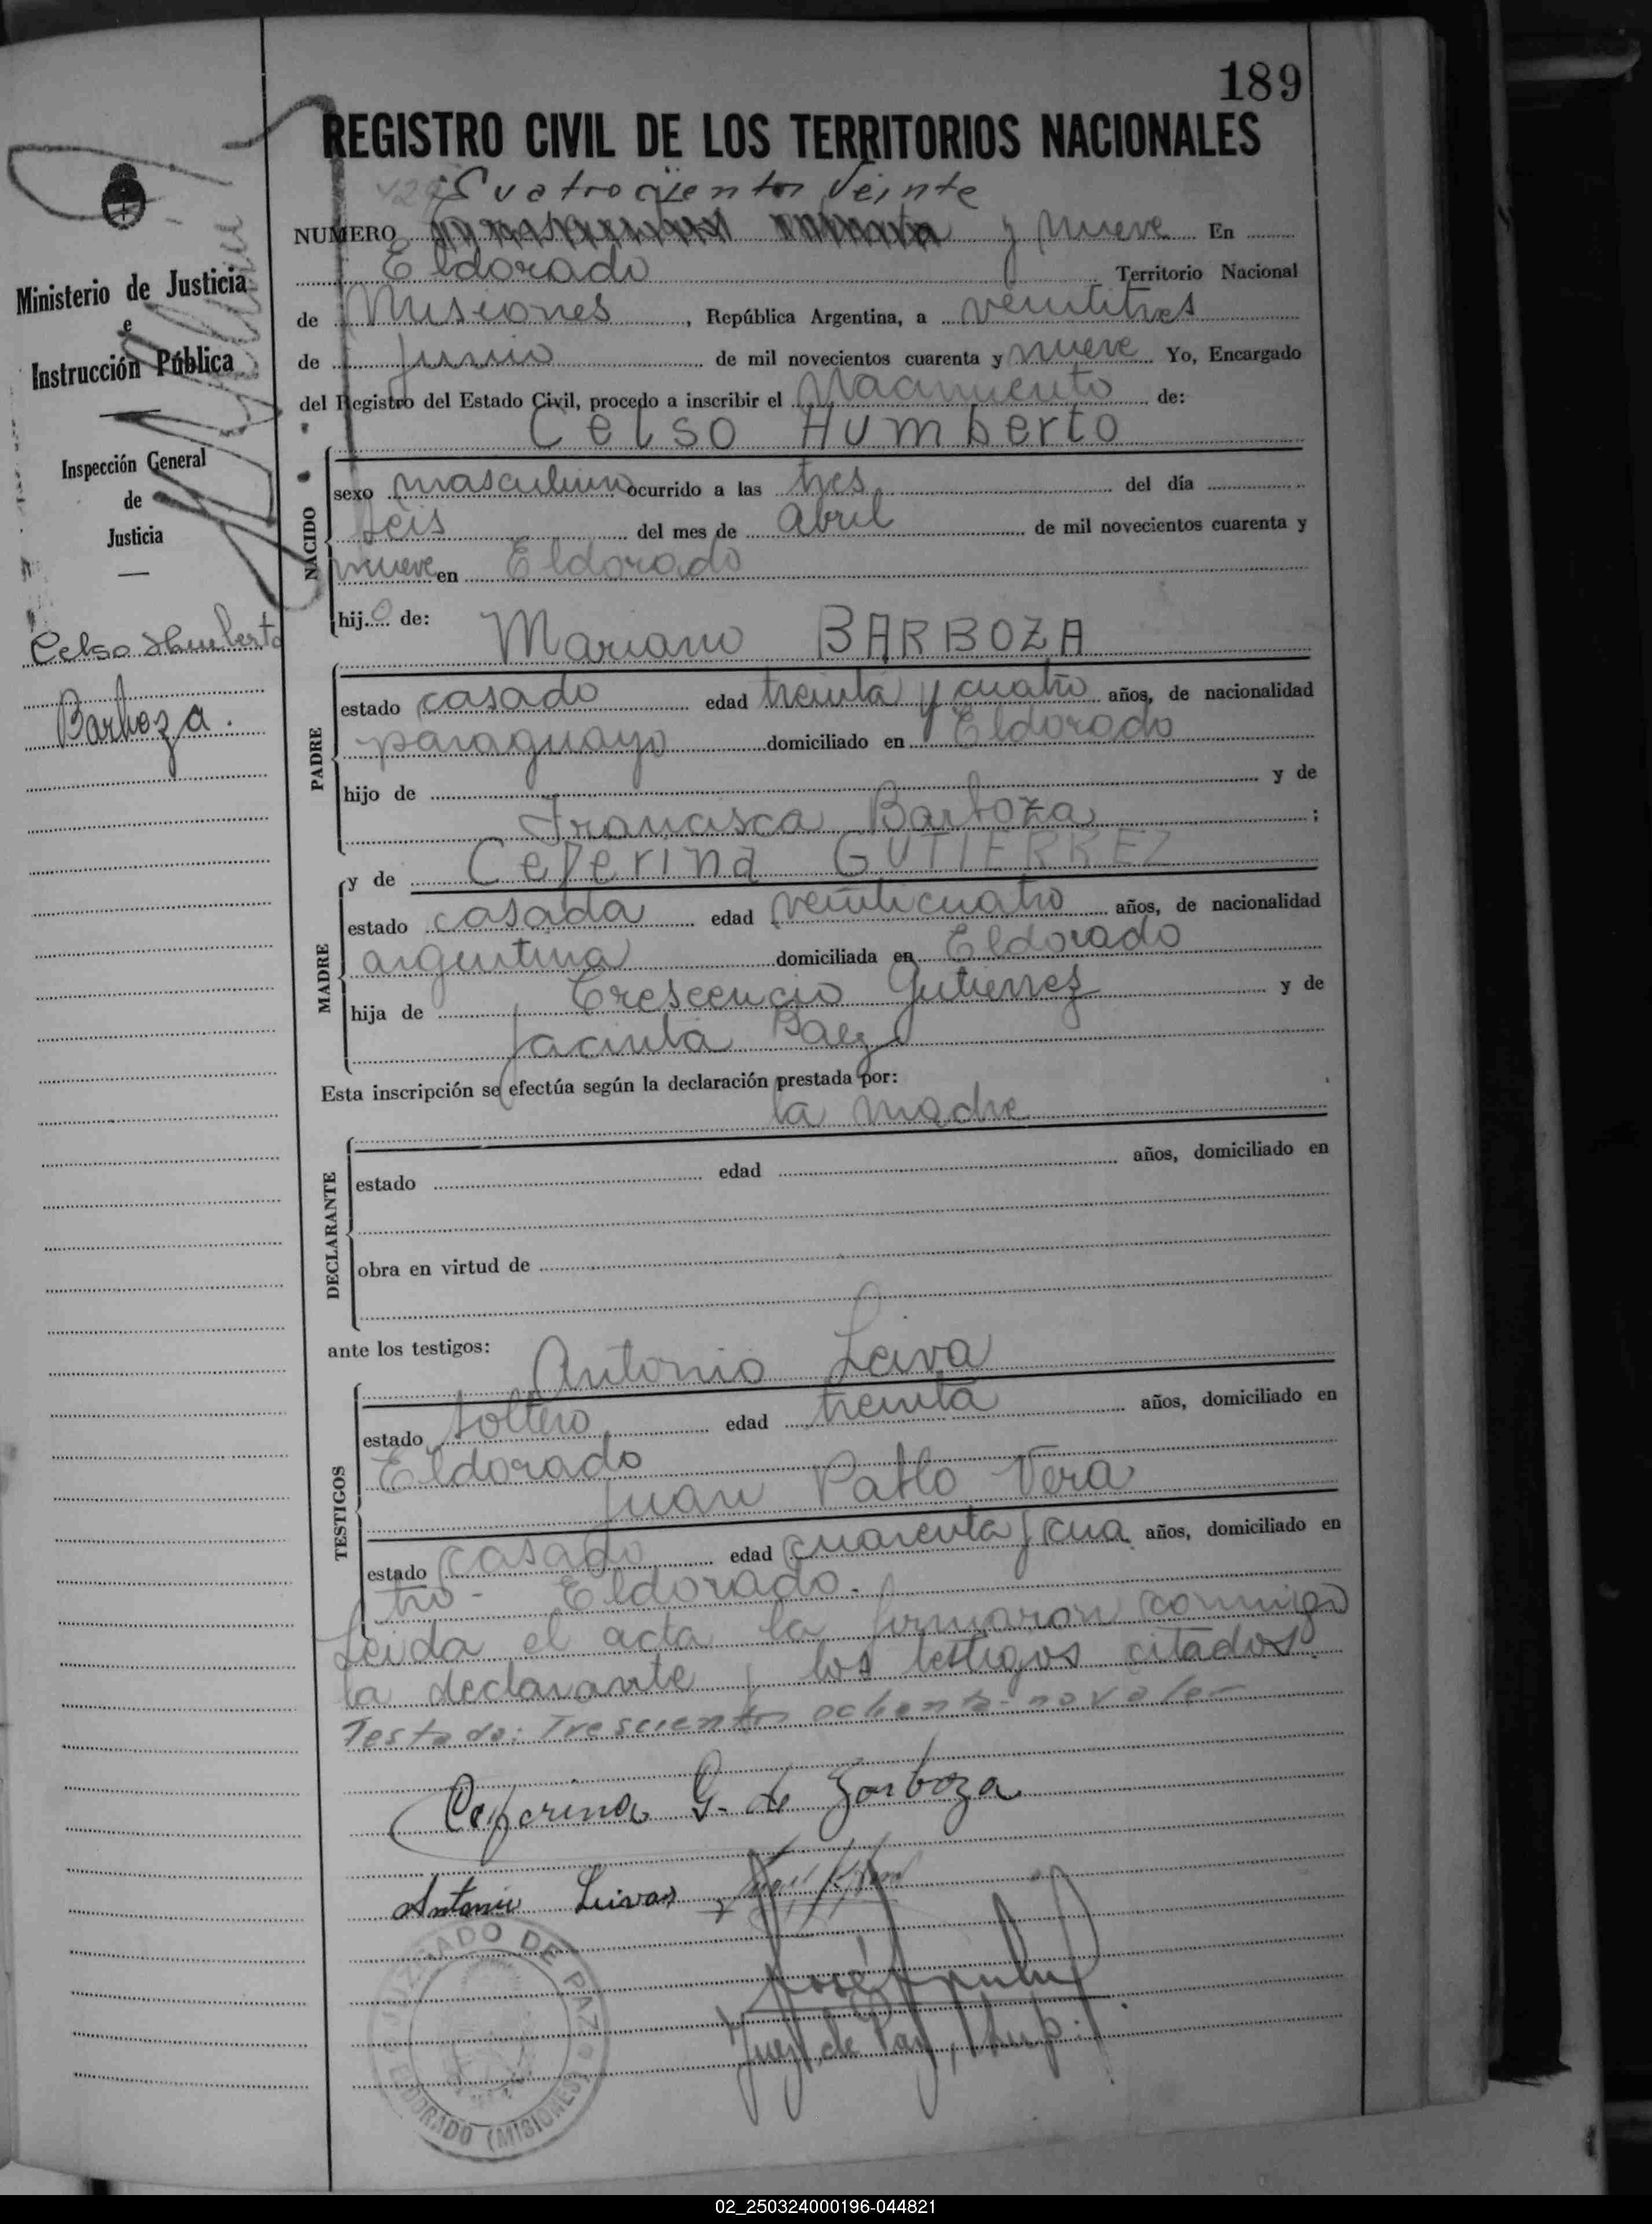 189
REGISTRO CIVIL DE LOS TERRITORIOS NACIONALES
429 Cuatrocientos Veinte
NUMERO y nueve En
Eldorado Territorio Nacional
de Misiones, República Argentina, a veintitres
de Junio de mil novecientos cuarenta y nueve Yo, Encargado
del Registro del Estado Civil, procedo a inscribir el Nacimiento de:
Celso Humberto
NACIDO
sexo masculino ocurrido a las tres del día
seis del mes de Abril de mil novecientos cuarenta y
nueve en Eldorado
hijo de:
Mariano BARBOZA
PADRE
estado casado edad treinta y cuatro años, de nacionalidad
paraguayo domiciliado en Eldorado
hijo de y de
Francisca Barboza ;
y de Ceferina GUTIERREZ
MADRE
estado casada edad veinticuatro años, de nacionalidad
argentina domiciliada en Eldorado
hija de Crescencio Gutierrez y de
Jacinta Baez
Esta inscripción se efectúa según la declaración prestada por:
la madre
DECLARANTE
estado edad años, domiciliado en
obra en virtud de
ante los testigos:
Antonio Leiva
TESTIGOS
estado soltero edad treinta años, domiciliado en
Eldorado
Juan Pablo Vera
estado casado edad cuarenta y cua años, domiciliado en
tro - Eldorado.-
Leida el acta la firmaron conmigo
la declarante y los testigos citados.
Testado: Trescientos ochenta - no vale -
Ceferina G. de Barboza
Antonio Leiva
Juez de Paz, Sup.
JUZGADO DE PAZ
ELDORADO (MISIONES)
Ministerio de Justicia
e
Instrucción Pública
Inspección General
de
Justicia
Celso Humberto
Barboza.
02_250324000196-044821